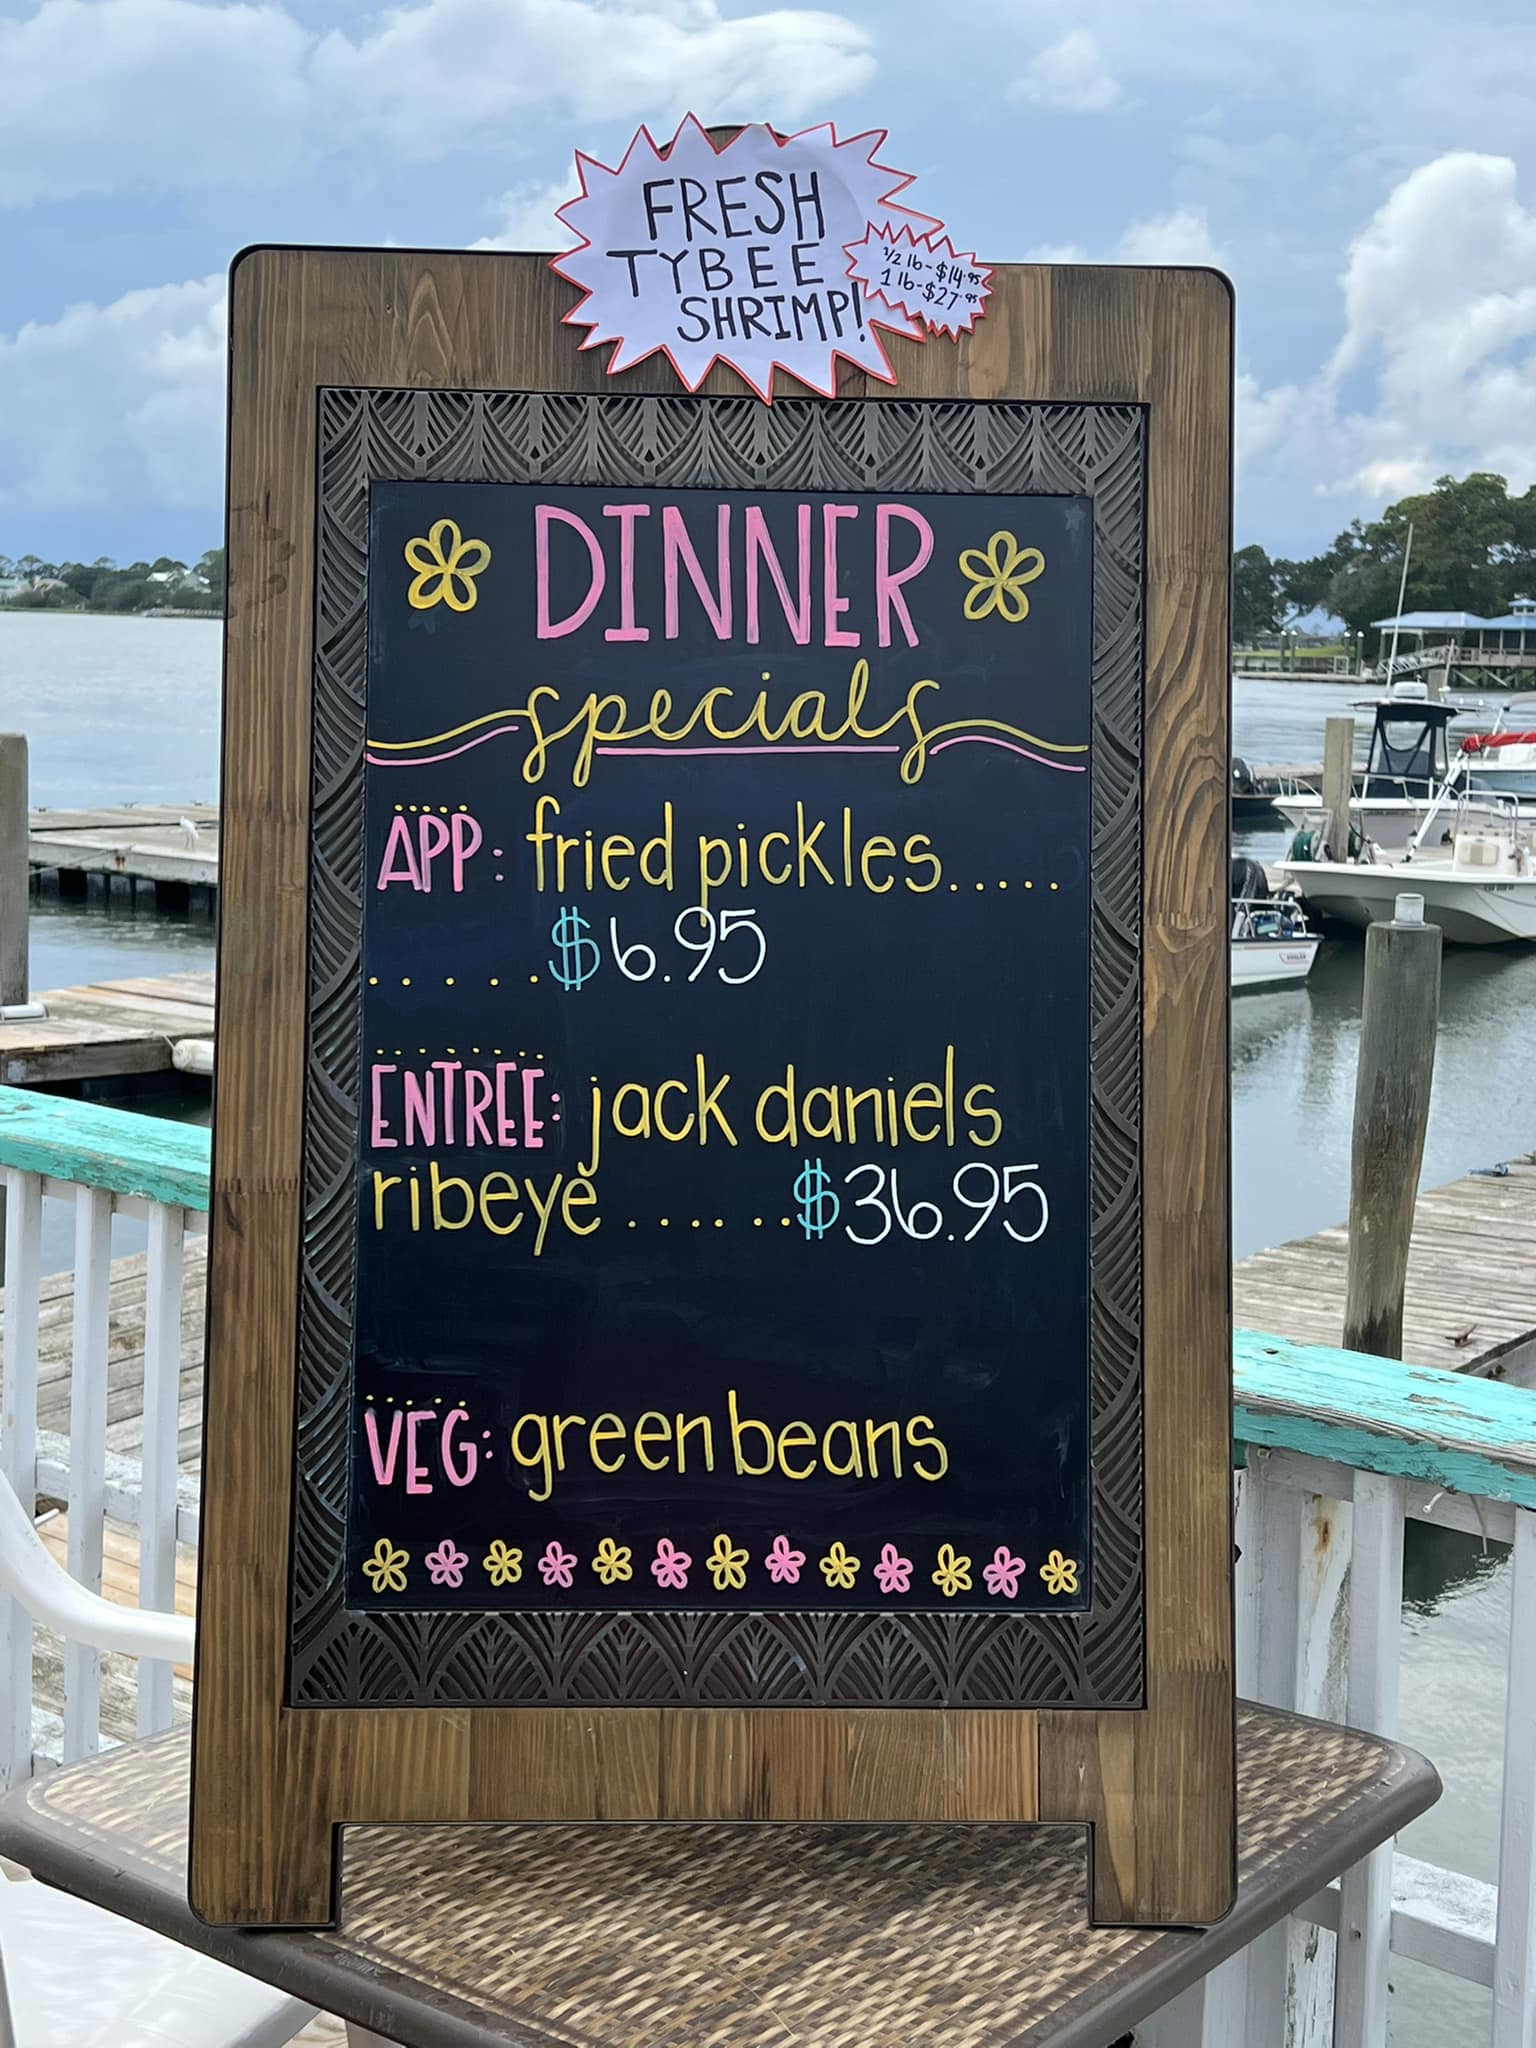 FRESH
TYBEE
SHRIMP!
1/2 lb-$14.95
1 lb-$27.95
DINNER
specials
APP: fried pickles.....
. . . . .$6.95
ENTREE: jack daniels
ribeye ......$36.95
VEG: green beans